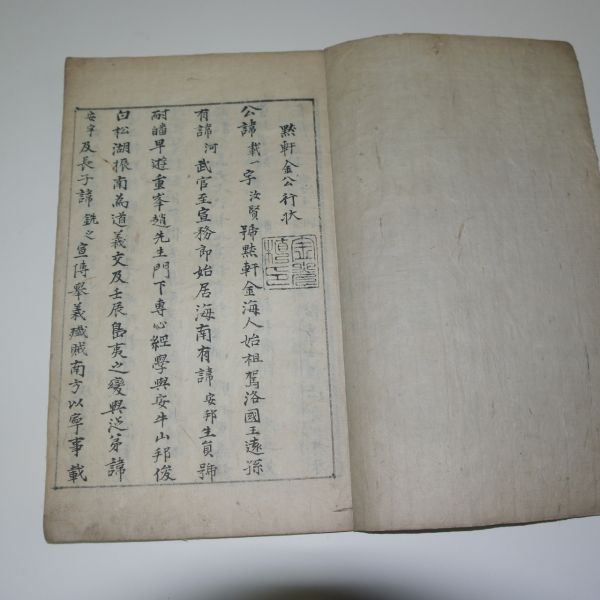 黙軒金公行狀
公諱載一字汝賢號黙軒金海人始祖駕洛國王遠孫
有諱河武官至宣務郎始居海南有諱安邦生員號
耐嗇早遊重峯趙先生門下專心經學與安牛山邦俊
白松湖振南為道義交及壬辰島夷之變與從弟諱
安宇及長子諱銑之宣傳擧義殲賊南方以寧事載